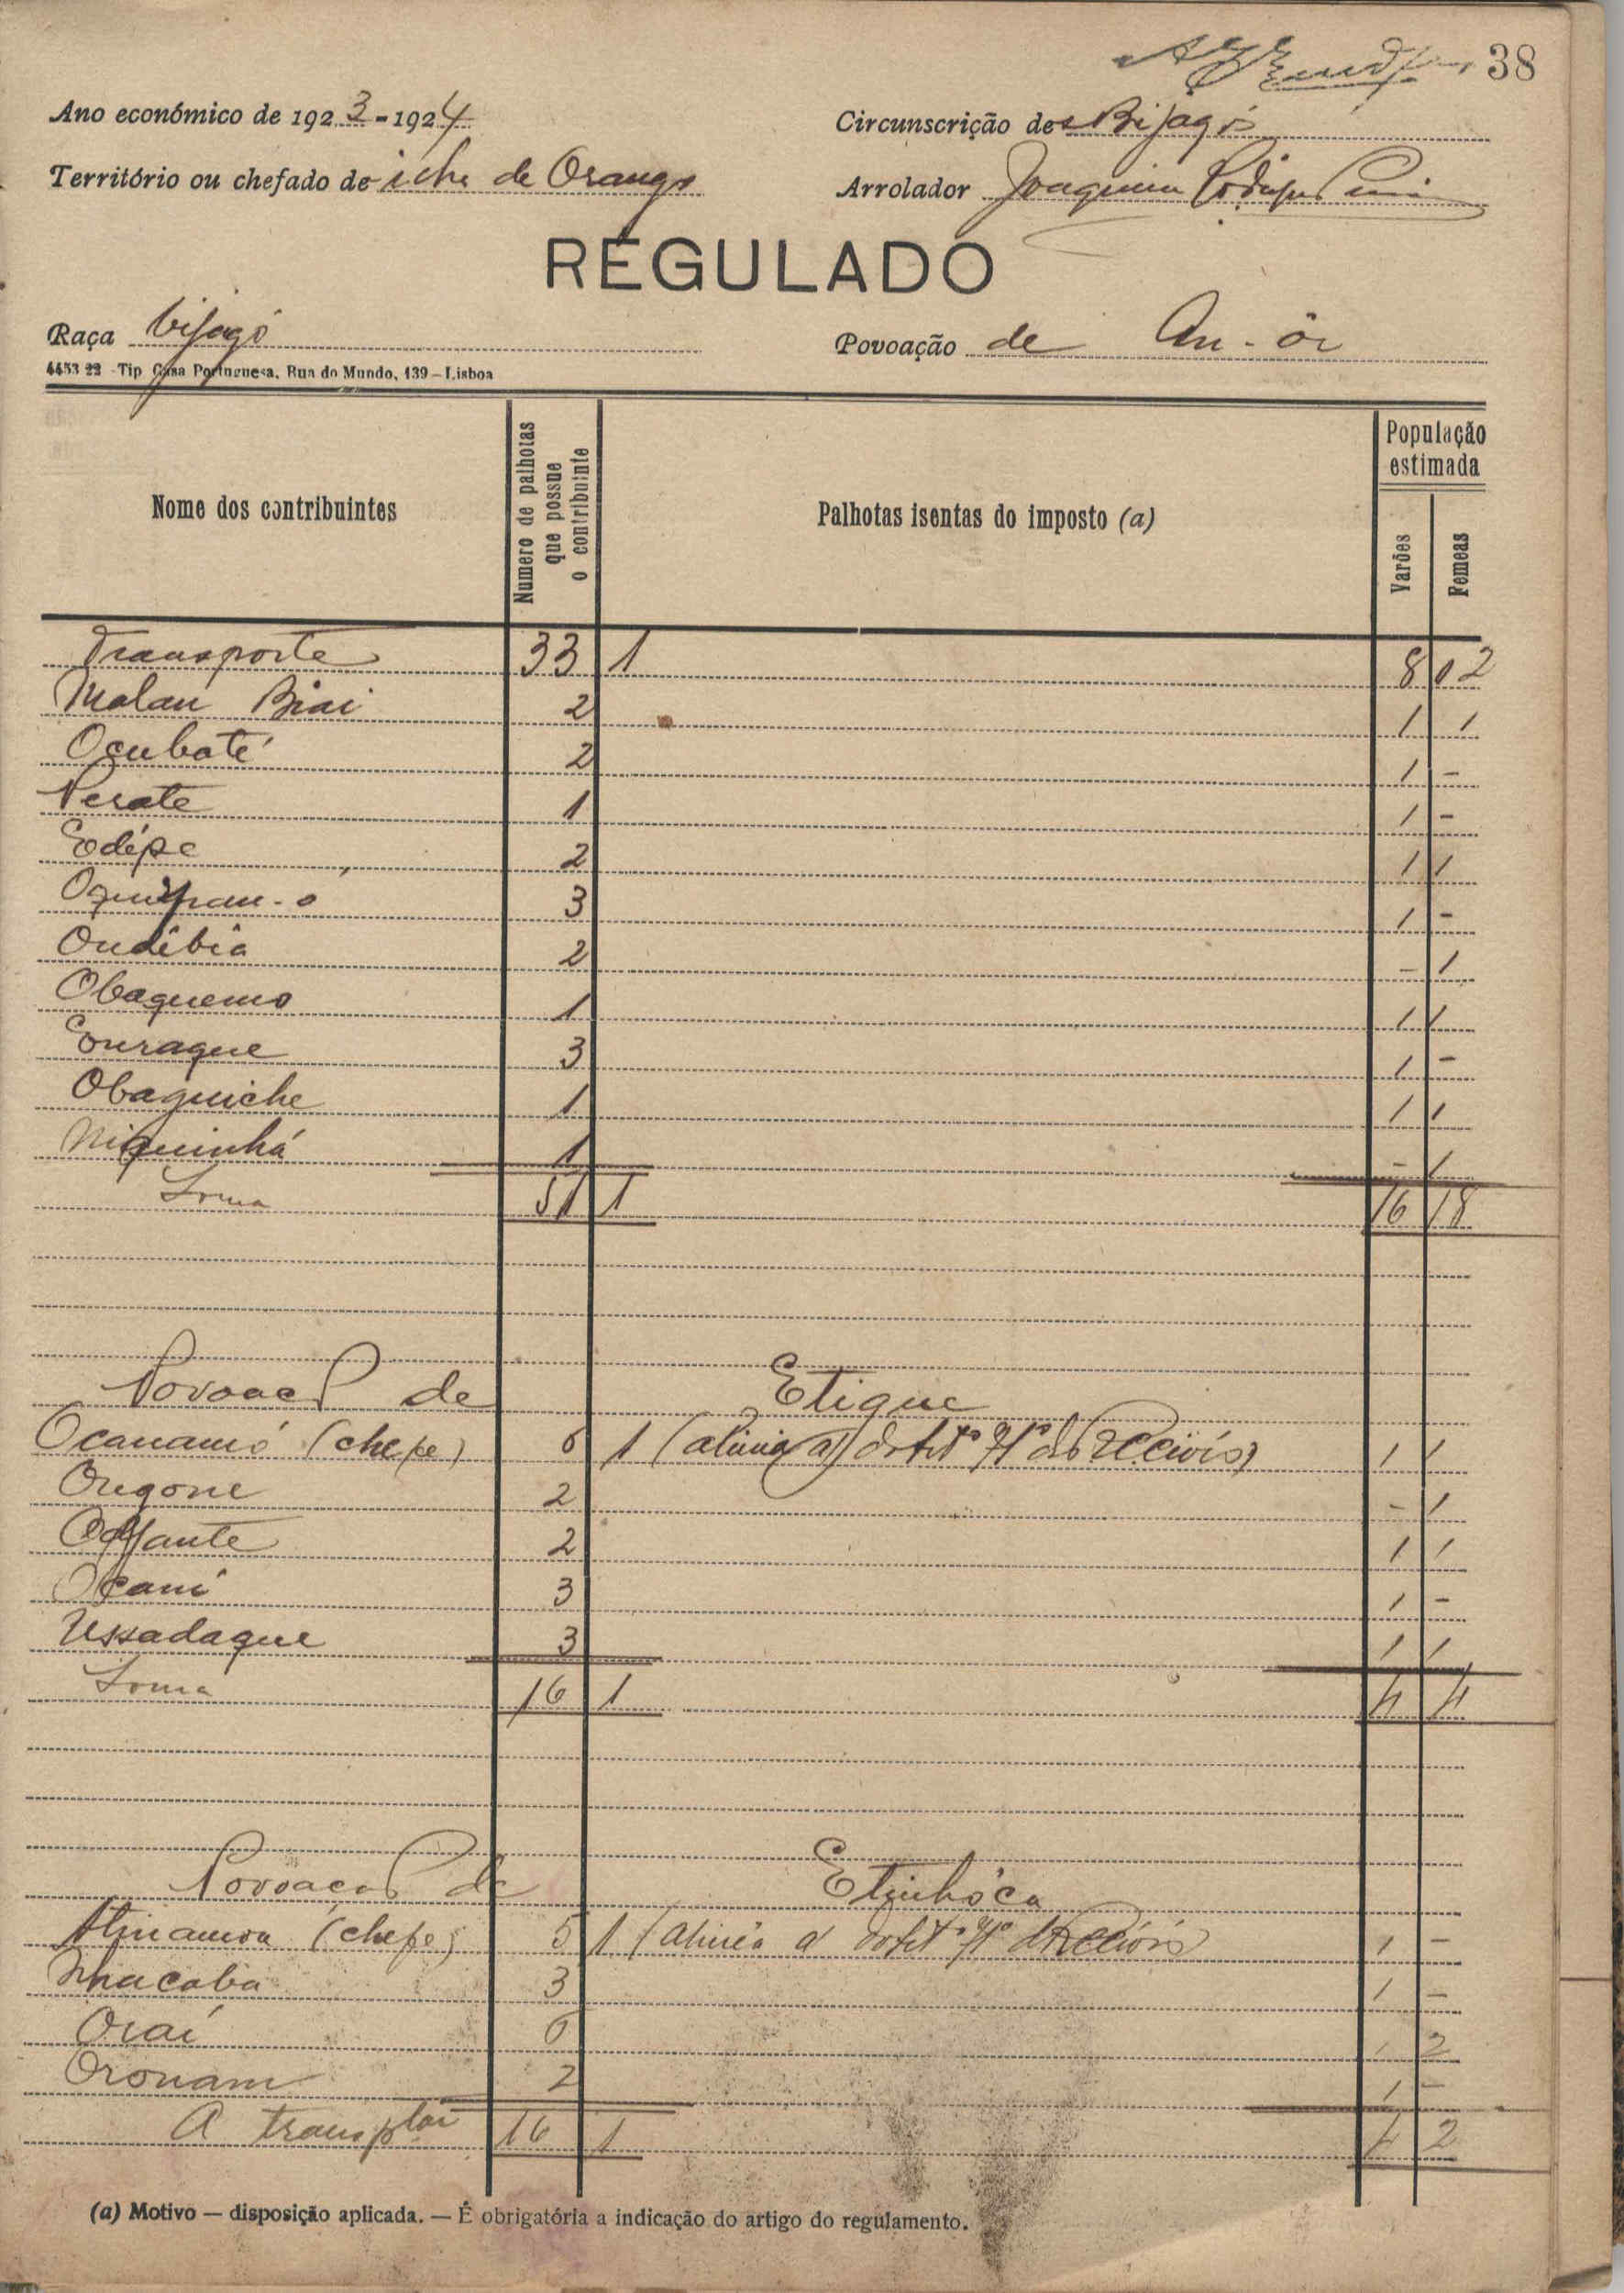 38
Ano económico de 1923-1924
Circunscrição de Bijagós
Território ou chefado de ilha de Orango
Arrolador Joaquim
REGULADO
Raça bijagó
Povoação de An-ôr
4453 22 - Tip Casa Portuguesa, Rua do Mundo, 139 - Lisboa
Nome dos contribuintes
Numero de palhotas que possue o contribuinte
Palhotas isentas do imposto (a)
População estimada
Varões
Femeas
Transporte 33 1 8 12
Malan Biai 2 1 1
Ocubaté 2 1 -
Nerate 1 1 -
Edépe 2 1 1
3 1 -
Ondibia 2 - 1
Obaquemo 1 1 1
Ouraque 3 1 -
Obaguiche 1 1 1
Niquinhá 1 - 1
Soma 51 1 16 18
Povoação de Etique
Ocanamó (chefe) 6 1 (alinia a) 1 1
Oregone 2 - 1
2 1 1
Ocani 3 1 -
Ussadaque 3 1 1
Soma 16 1 4 4
Povoação de Etinhóca
(chefe) 5 1 (alinea a 1 -
Nhacaba 3 1 -
Oraí 6 1 2
Oronam 2 1 -
A transptar 16 1 4 2
(a) Motivo — disposição aplicada. — É obrigatória a indicação do artigo do regulamento.